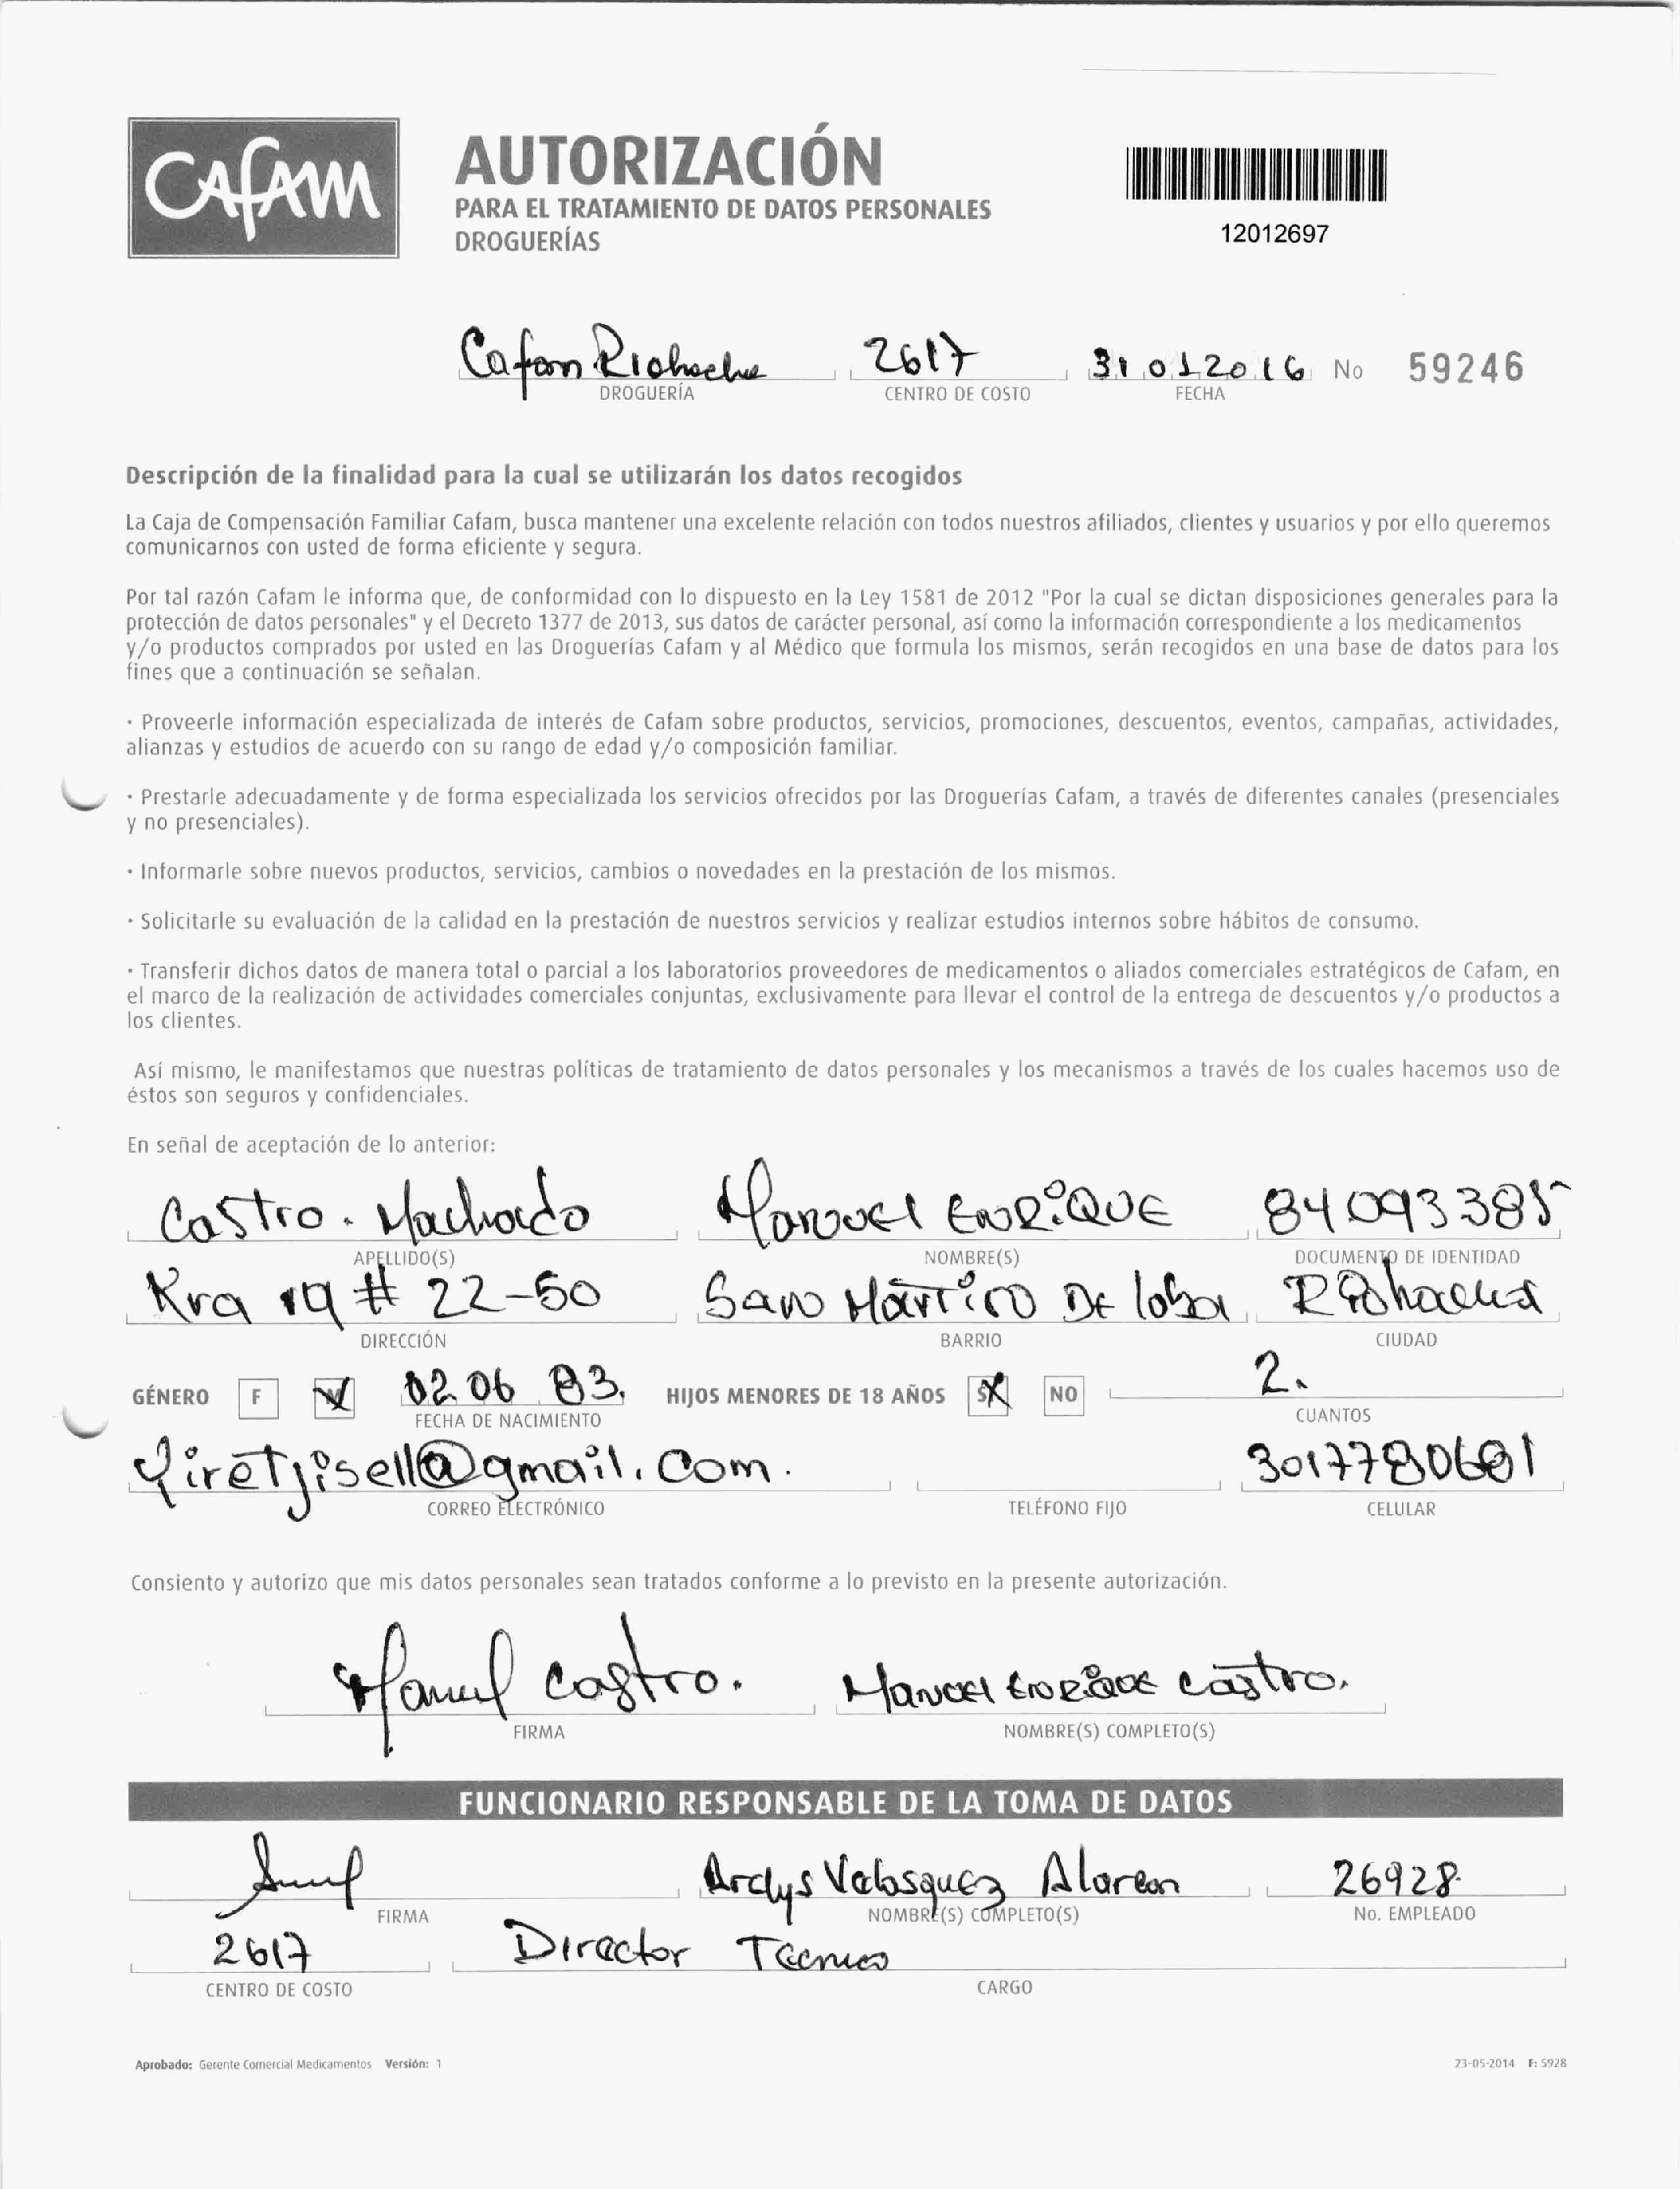 CAFAM
AUTORIZACIÓN
PARA EL TRATAMIENTO DE DATOS PERSONALES
DROGUERÍAS
12012697
Cafam Riohacha 2617 31 01 2016 No 59246
DROGUERÍA CENTRO DE COSTO FECHA
Descripción de la finalidad para la cual se utilizarán los datos recogidos
La Caja de Compensación Familiar Cafam, busca mantener una excelente relación con todos nuestros afiliados, clientes y usuarios y por ello queremos
comunicarnos con usted de forma eficiente y segura.
Por tal razón Cafam le informa que, de conformidad con lo dispuesto en la Ley 1581 de 2012 "Por la cual se dictan disposiciones generales para la
protección de datos personales" y el Decreto 1377 de 2013, sus datos de carácter personal, así como la información correspondiente a los medicamentos
y/o productos comprados por usted en las Droguerías Cafam y al Médico que formula los mismos, serán recogidos en una base de datos para los
fines que a continuación se señalan.
· Proveerle información especializada de interés de Cafam sobre productos, servicios, promociones, descuentos, eventos, campañas, actividades,
alianzas y estudios de acuerdo con su rango de edad y/o composición familiar.
· Prestarle adecuadamente y de forma especializada los servicios ofrecidos por las Droguerías Cafam, a través de diferentes canales (presenciales
y no presenciales).
· Informarle sobre nuevos productos, servicios, cambios o novedades en la prestación de los mismos.
· Solicitarle su evaluación de la calidad en la prestación de nuestros servicios y realizar estudios internos sobre hábitos de consumo.
· Transferir dichos datos de manera total o parcial a los laboratorios proveedores de medicamentos o aliados comerciales estratégicos de Cafam, en
el marco de la realización de actividades comerciales conjuntas, exclusivamente para llevar el control de la entrega de descuentos y/o productos a
los clientes.
Así mismo, le manifestamos que nuestras políticas de tratamiento de datos personales y los mecanismos a través de los cuales hacemos uso de
éstos son seguros y confidenciales.
En señal de aceptación de lo anterior:
Castro. Machado Manuel ENRiQUE 84093385
APELLIDO(S) NOMBRE(S) DOCUMENTO DE IDENTIDAD
Kra 19 # 22-50 San Martin De loba Riohacha
DIRECCIÓN BARRIO CIUDAD
GÉNERO F M 02.06 83. HIJOS MENORES DE 18 AÑOS SI NO 2.
FECHA DE NACIMIENTO CUANTOS
Yiretjisell@gmail.com. 3017780681
CORREO ELECTRÓNICO TELÉFONO FIJO CELULAR
Consiento y autorizo que mis datos personales sean tratados conforme a lo previsto en la presente autorización.
Manuel Castro. Manuel Enrique Castro.
FIRMA NOMBRE(S) COMPLETO(S)
FUNCIONARIO RESPONSABLE DE LA TOMA DE DATOS
Arclys Velasquez Alarcon 26928.
FIRMA NOMBRE(S) COMPLETO(S) No. EMPLEADO
2617 Director Tecnico
CENTRO DE COSTO CARGO
Aprobado: Gerente Comercial Medicamentos Versión: 1 23-05-2014 F: 5928